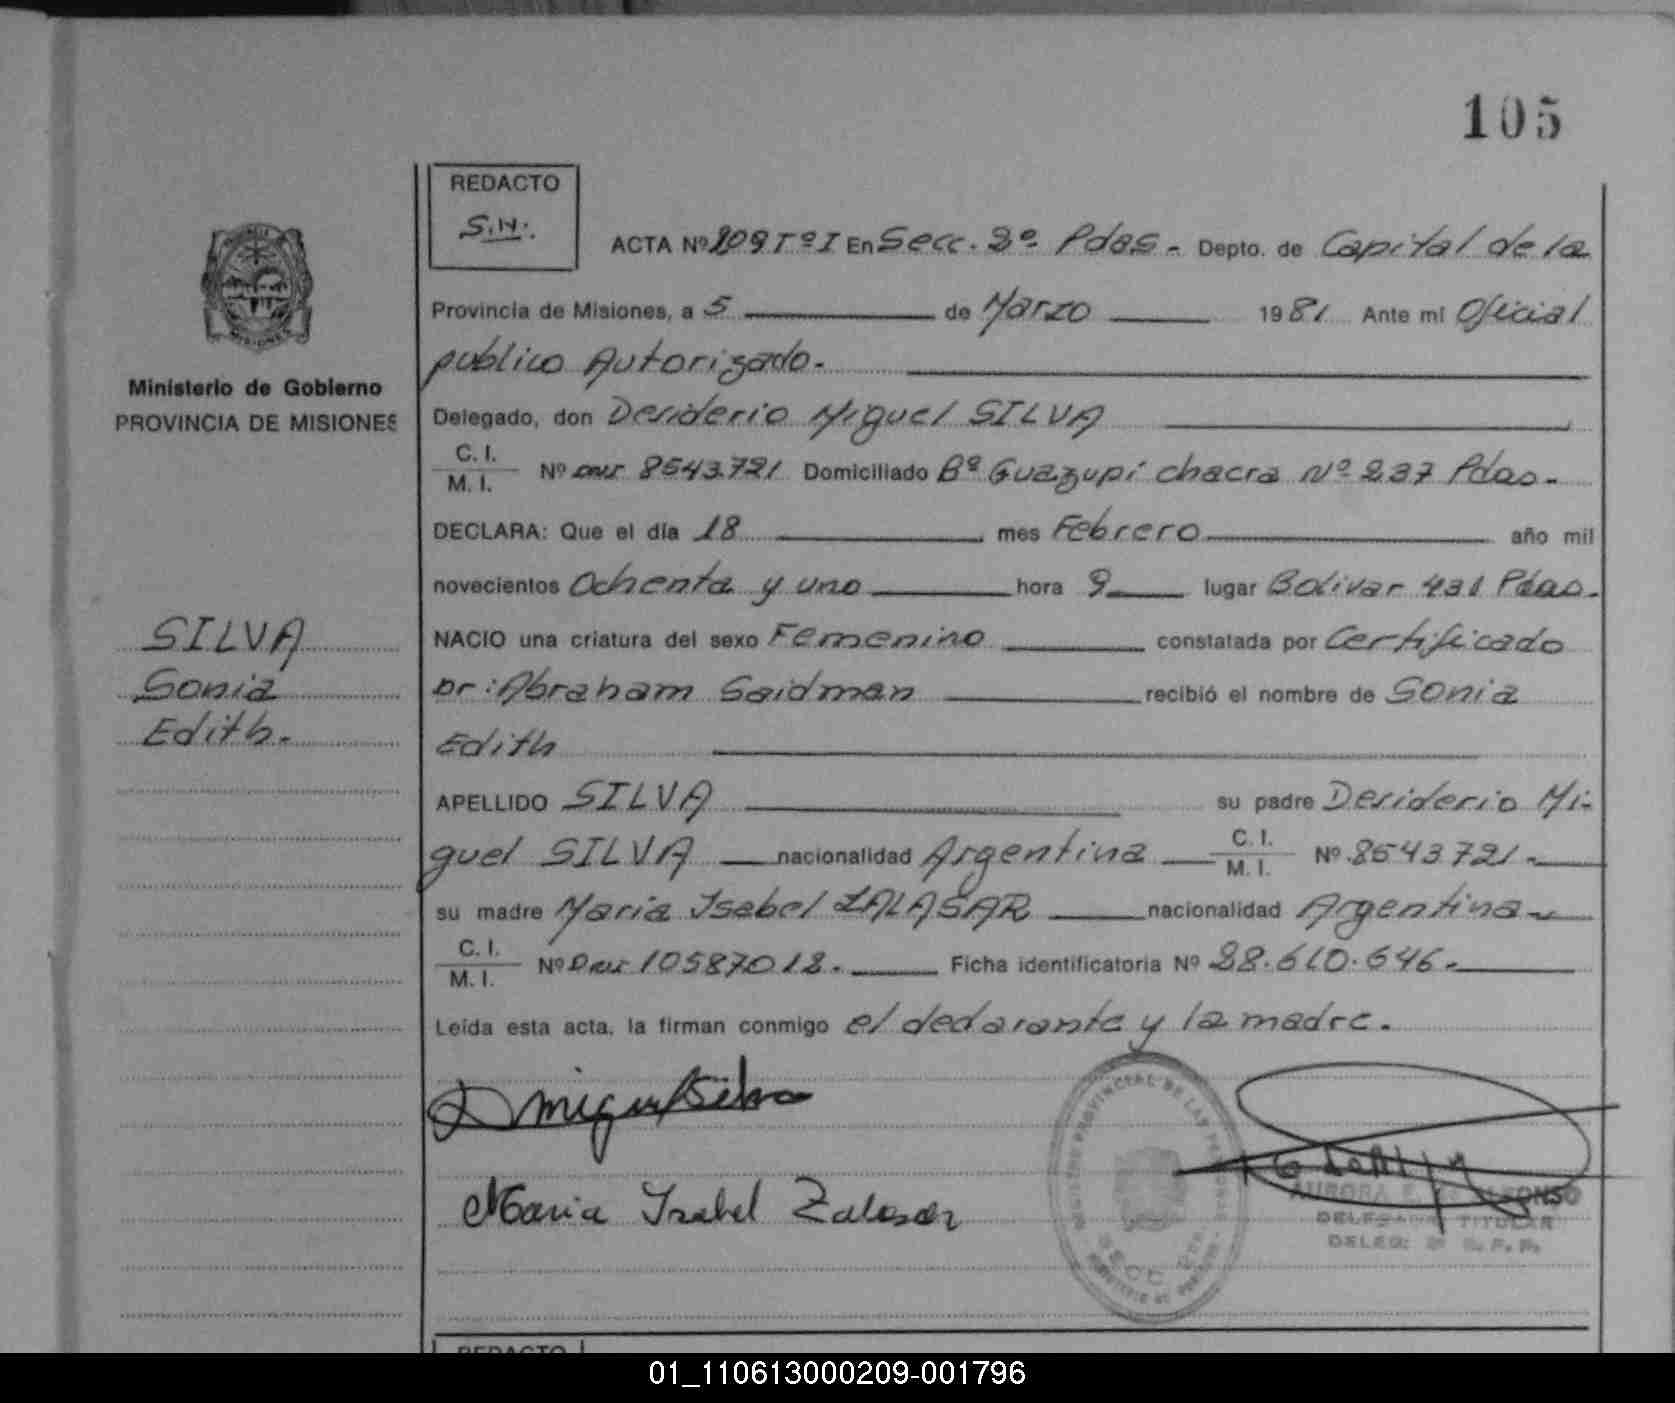 105
REDACTO
S.H.
ACTA Nº 209 Tº I En Secc. 2º Pdas. Depto. de Capital de la
Provincia de Misiones, a 5 de Marzo 1981 Ante mi Oficial
publico Autorizado.
Ministerio de Gobierno
PROVINCIA DE MISIONES
Delegado, don Desiderio Miguel SILVA
C. I.
M. I. Nº DNI 8543.721 Domiciliado Bº Guazupi chacra Nº 237 Pdas.
DECLARA: Que el día 18 mes Febrero año mil
novecientos Ochenta y uno hora 9 lugar Bolivar 431 Pdas.
SILVA
Sonia
Edith.
NACIO una criatura del sexo Femenino constatada por Certificado
Dr: Abraham Saidman recibió el nombre de Sonia
Edith
APELLIDO SILVA su padre Desiderio Mi-
guel SILVA nacionalidad Argentina C. I. M. I. Nº 8543721.
su madre Maria Isabel ZALASAR nacionalidad Argentina
C. I.
M. I. Nº DNI 10587012. Ficha identificatoria Nº 28.610.646.
Leída esta acta, la firman conmigo el declarante y la madre.
D Miguel Silva
Maria Isabel Zalasar
REGISTRO PROVINCIAL DE LAS PERSONAS
SECC.
DELEGADA TITULAR
REDACTO
01_110613000209-001796